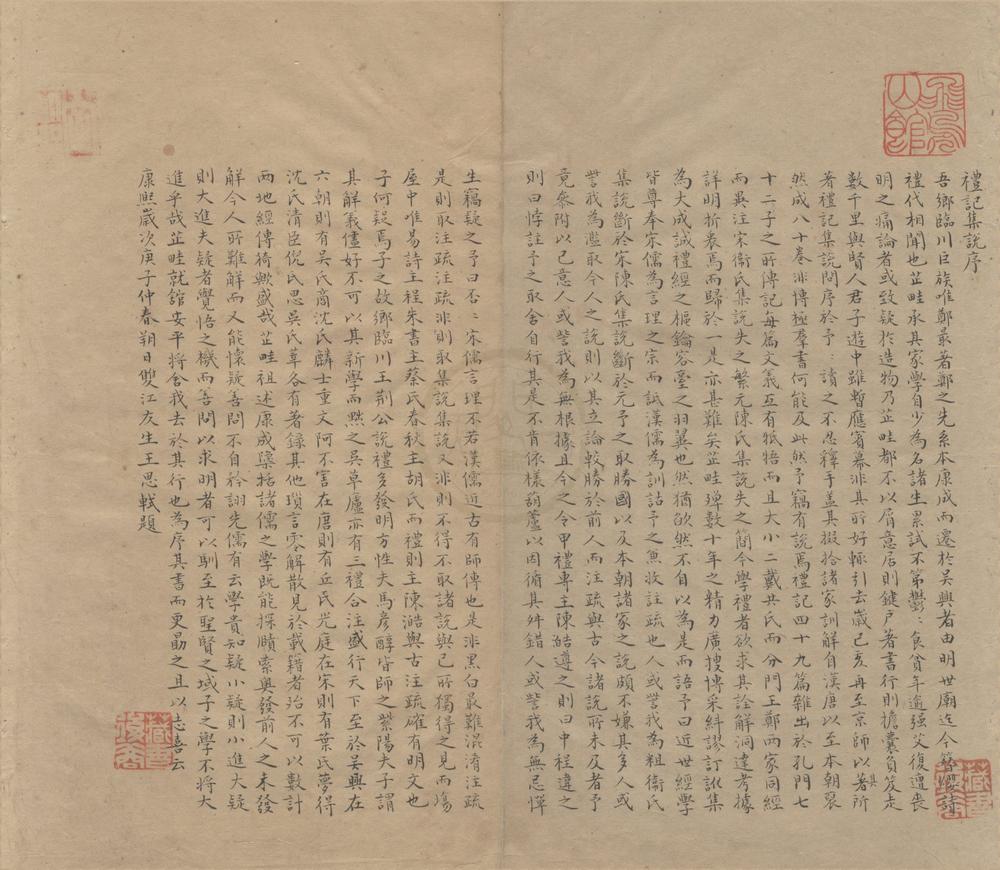 禮記集說序
吾鄉臨川巨族唯鄭最著鄭之先系本康成而遷於吳興者由明世廟迄今簪纓詩
禮代相聞也芷畦承其家學自少為名諸生累試不第鬱：食貧年逾強艾復遭喪
明之痛論者或致疑於造物乃芷畦都不以屑意居則鍵戶著書行則擔囊負笈走
數千里與賢人君子遊中雖暫應賓幕非其所好輒引去歲己亥再至京師以其所
著禮記集說問序於予：讀之不忍釋手盖其掇拾諸家訓解自漢唐以至本朝裒
然成八十卷非博極羣書何能及此然予竊有說焉禮記四十九篇雜出於孔門七
十二子之所傳記每篇文義互有牴牾而且大小二戴共氏而分門王鄭兩家同經
而異注宋衛氏集說失之繁元陳氏集說失之簡今學禮者欲求其詮解洞達考據
詳明折衷焉而歸於一是亦甚難矣芷畦殫數十年之精力廣搜博采糾謬訂訛集
為大成誠禮經之樞鑰容臺之羽翼也然猶欿然不自以為是而語予曰近世經學
皆尊奉宋儒為言理之宗而詆漢儒為訓詁予之兼收註疏也人或訾我為粗衛氏
集說斷於宋陳氏集說斷於元予之取勝國以及本朝諸家之說頗不嫌其多人或
訾我為濫取今人之說則以其立論較勝於前人而注疏與古今諸說所未及者予
竟參附以己意人或訾我為無根據且今之令甲禮專主陳澔遵之則曰中程違之
則曰悖註予之取舍自行其是不肯依樣葫蘆以因循其舛錯人或訾我為無忌憚
生竊疑之予曰否：宋儒言理不若漢儒近古有師傳也是非黑白最難混淆注疏
是則取注疏注疏非則取集說集說又非則不得不取諸說與己所獨得之見而傷
屋中唯易詩主程朱書主蔡氏春秋主胡氏而禮則主陳澔與古注疏確有明文也
子何疑焉予之故鄉臨川王荊公說禮多發明方性夫馬彥醇皆師之紫陽夫子謂
其解義儘好不可以其新學而黜之吳草廬亦有三禮合注盛行天下至於吳興在
六朝則有吳氏商沈氏麟士重文阿不害在唐則有丘氏光庭在宋則有葉氏夢得
沈氏清臣倪氏思吳氏莘各有著錄其他瑣言零解散見於載籍者殆不可以數計
兩地經傳猗歟盛哉芷畦祖述康成櫽括諸儒之學既能探賾索奧發前人之未發
解今人所難解而又能懷疑善問不自矜詡先儒有云學貴知疑小疑則小進大疑
則大進夫疑者覺悟之機而吾問以求明者可以馴至於聖賢之域子之學不將大
進乎哉芷畦就舘安平將舍我去於其行也為序其書而更勗之且以志喜云
康熙歲次庚子仲春朔日雙江友生王思軾題